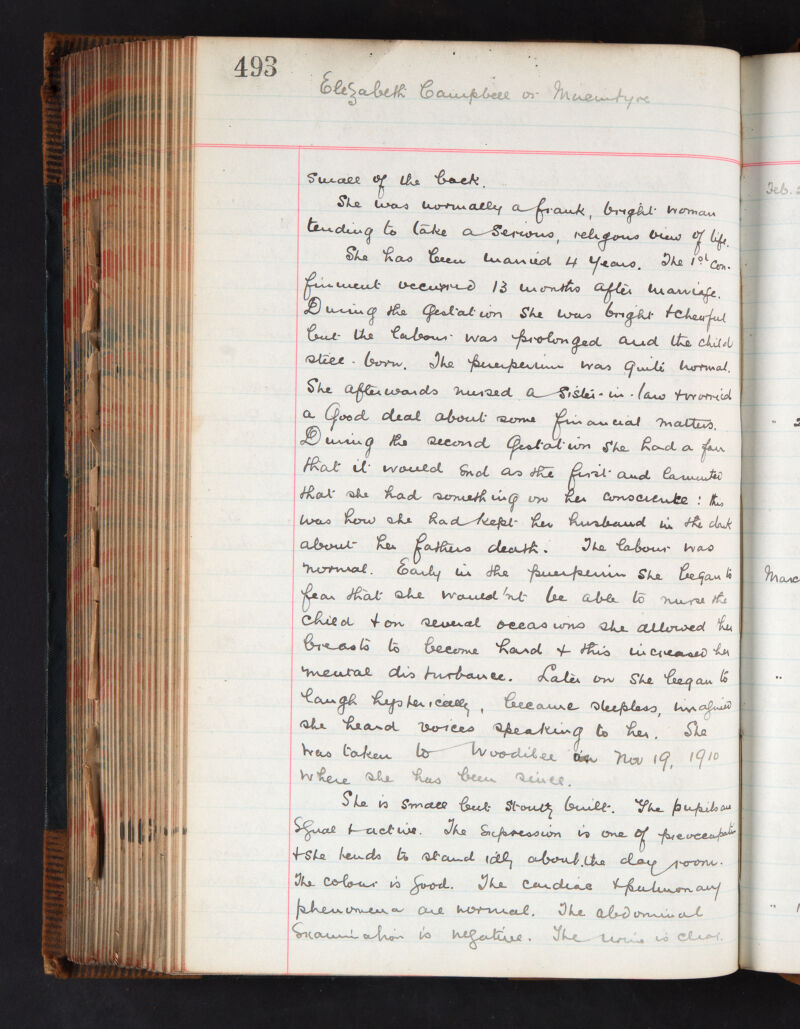 493
Elizabeth Campbell or Macintyre
Small of the back.
She was normally a frank, bright woman
tending to take a serious, religous view of life.
She has been married 4 years. The 1st con-
finement occurred 13 months after marriage.
During the Gestation She was bright & cheerful
but the labour was prolonged and the child
still-born. The puerperium was quite normal.
She afterwards nursed a Sister-in-law & worried
a Good deal about some financial matters.
During the second Gestation She had a fear
that it would End as the first and lamented
that she had something on her conscience: this
was how she had kept her husband in the dark
about her fathers death. The labour was
normal. Early in the puerperium She began to
fear that she would'nt be able to nurse the
child & on several occasions she allowed her
breasts to become hard & this increased her
mental disturbance. Later on She began to
laugh hysterically, became sleepless, imagined
she heard voices speaking to her. She
was taken to Woodilee on Nov 19, 1910
where she has been since.
She is small but stoutly built. The pupils are
Equal & active. The Expression is one of preoccupation
& She tends to stand idly about the day room.
The colour is Good. The cardiac & pulmonary
phenomena are normal. The abdominal
Examination is negative. The urine is clear.
Feb.
"
"
"